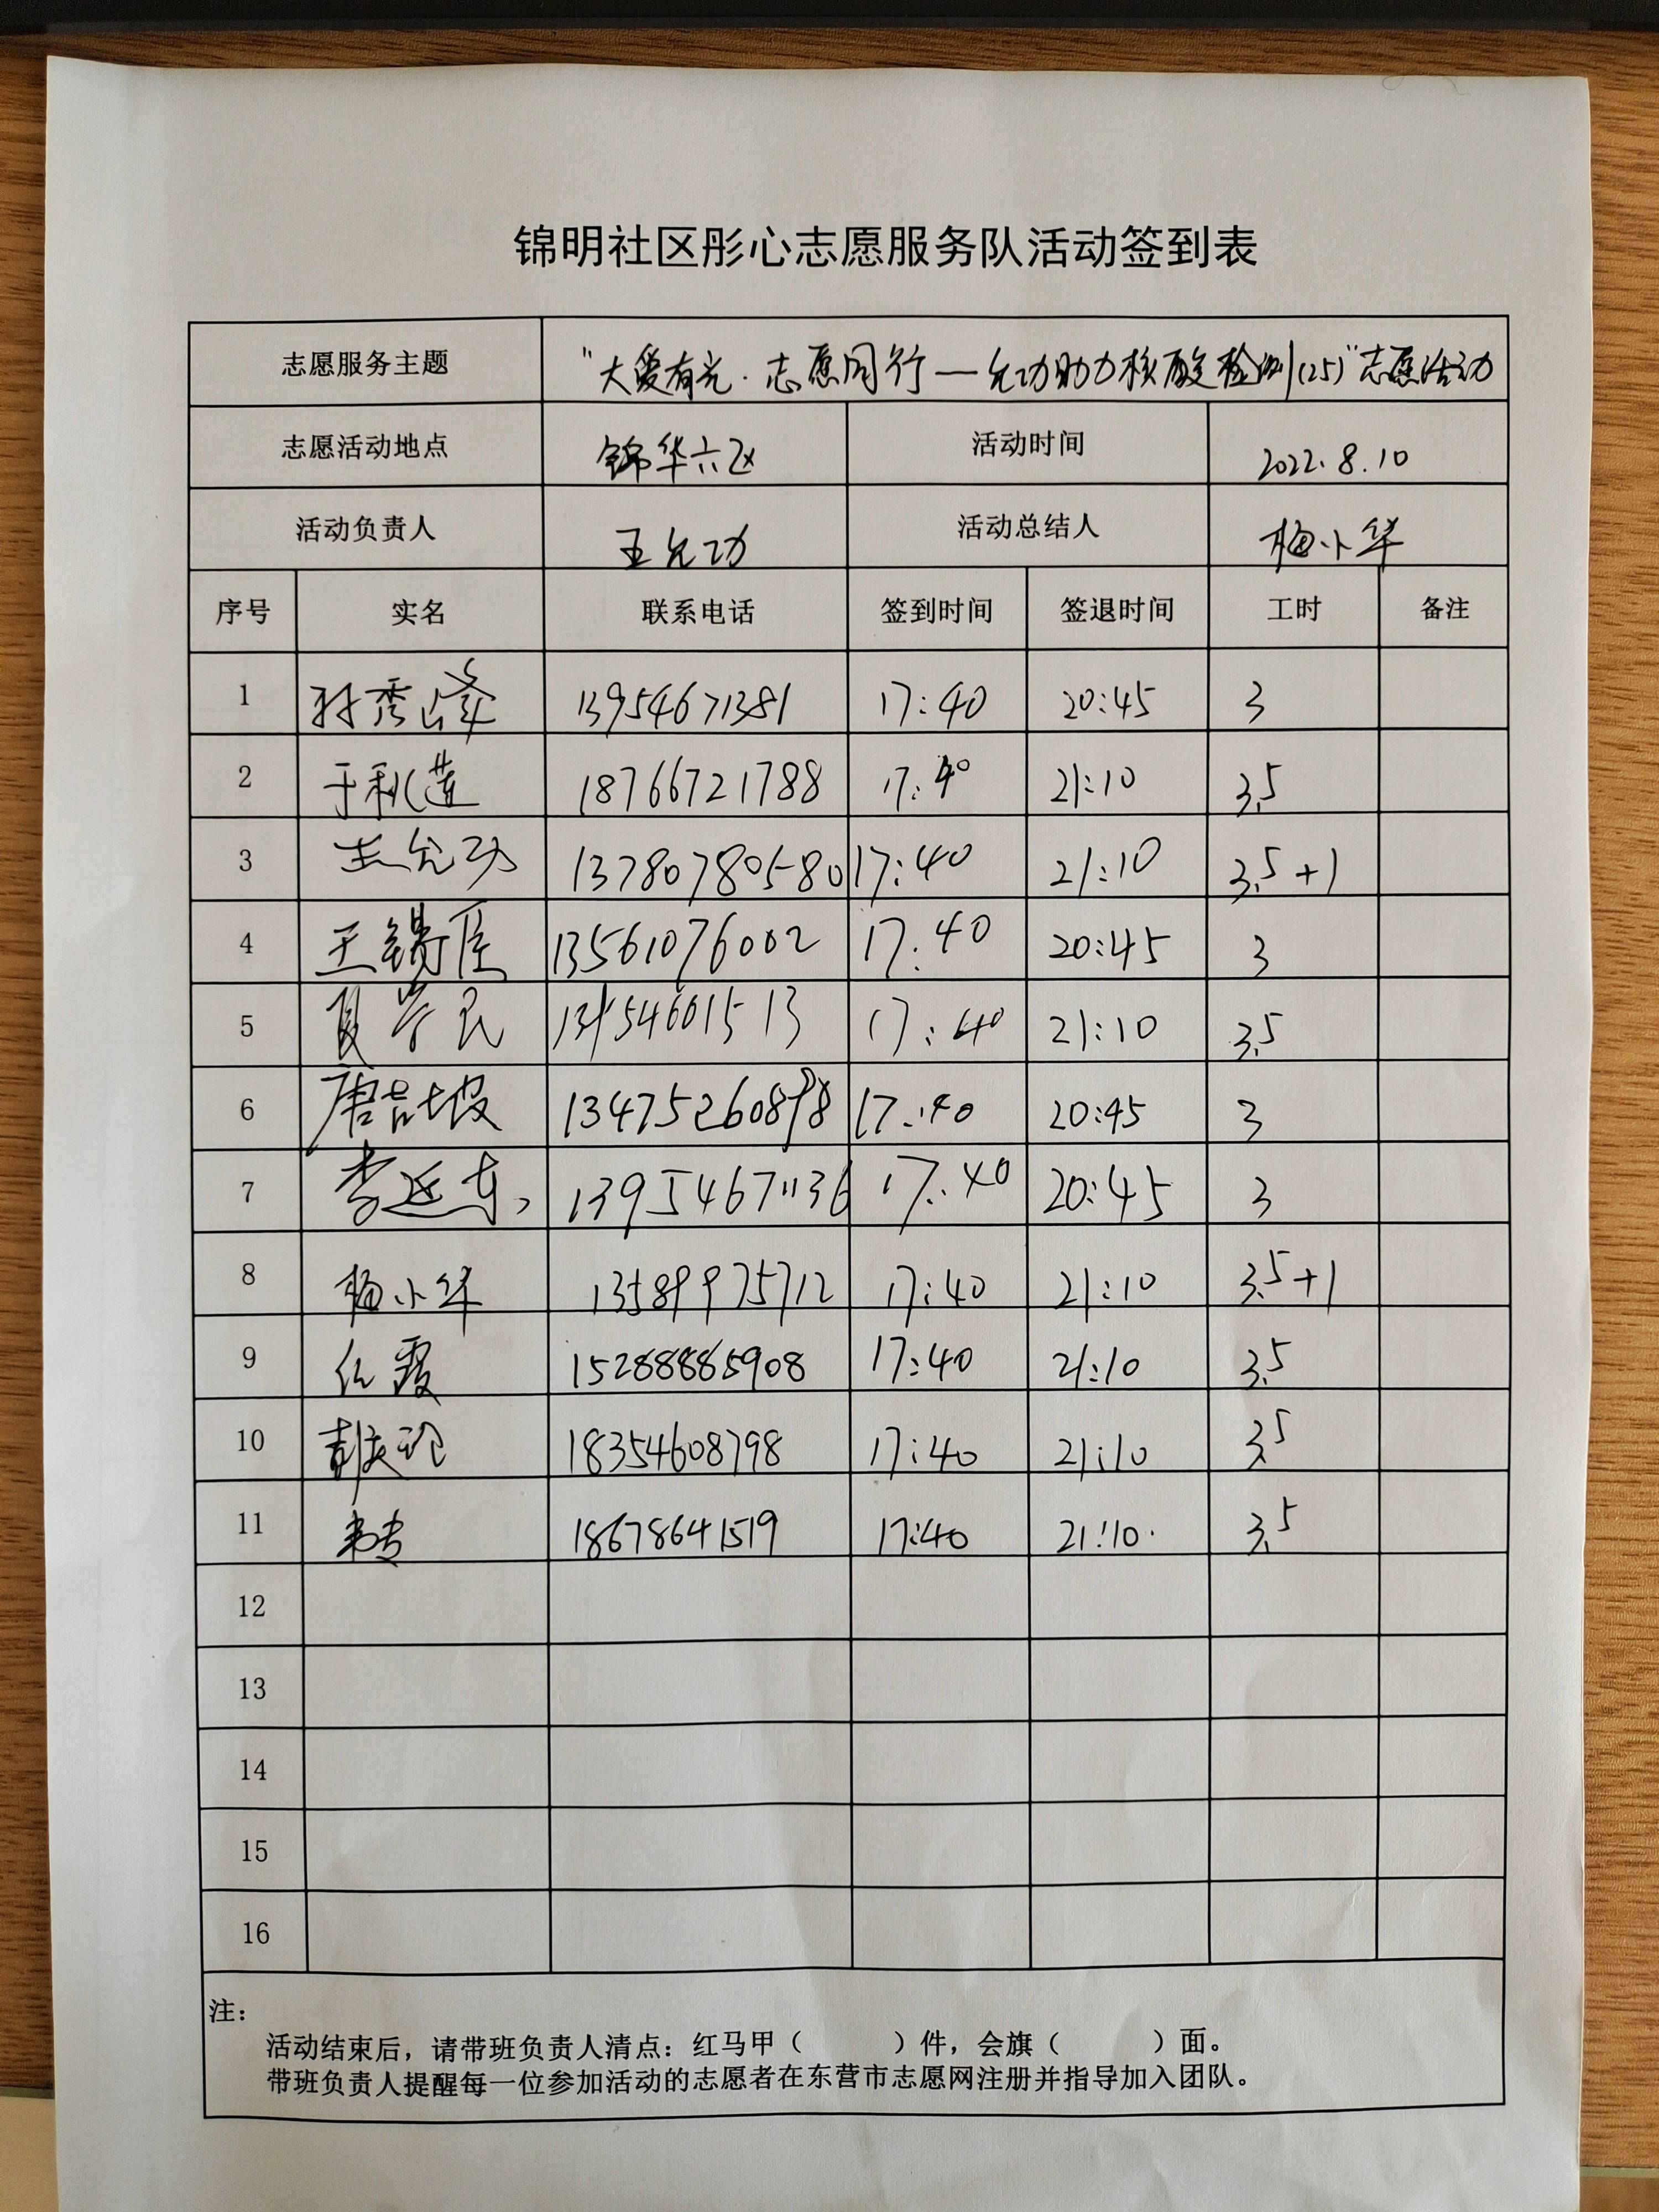 锦明社区彤心志愿服务队活动签到表
志愿服务主题 "大爱有光·志愿同行—允功助力核酸检测(25)"志愿活动
志愿活动地点 锦华六区 活动时间 2022.8.10
活动负责人 王允功 活动总结人 梅小华
序号 实名 联系电话 签到时间 签退时间 工时 备注
1 孙秀峰 13954671381 17:40 20:45 3
2 于利莲 18766721788 17:40 21:10 3.5
3 王允功 13780780580 17:40 21:10 3.5+1
4 王锡臣 13561076002 17:40 20:45 3
5 17:40 21:10 3.5
6 唐吉坡 17:40 20:45 3
7 李延东 13954671136 17:40 20:45 3
8 梅小华 13589975712 17:40 21:10 3.5+1
9 任霞 15288885908 17:40 21:10 3.5
10 18354608798 17:40 21:10 3.5
11 18678641519 17:40 21:10 3.5
12
13
14
15
16
注:
活动结束后，请带班负责人清点：红马甲（ ）件，会旗（ ）面。
带班负责人提醒每一位参加活动的志愿者在东营市志愿网注册并指导加入团队。